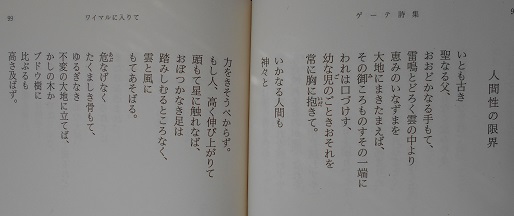 ゲーテ詩集
人間性の限界
いとも古き
聖なる父、
おおどかなる手もて、
雷鳴とどろく雲の中より
恵みのいなずまを
大地にまきたまえば、
その御ころものすその一端に
われは口づけす、
幼な児のごときおそれを
常に胸に抱きて。
いかなる人間も
神々と
ワイマルに入りて
力をきそうべからず。
もし人、高く伸び上がりて
頭もて星に触れなば、
おぼつかなき足は
踏みしむるところなく、
雲と風に
もてあそばる。
危なげなく
たくましき骨もて、
ゆるぎなき
不変の大地に立てば、
かしの木か
ブドウ樹に
比ぶるも
高さ及ばず。